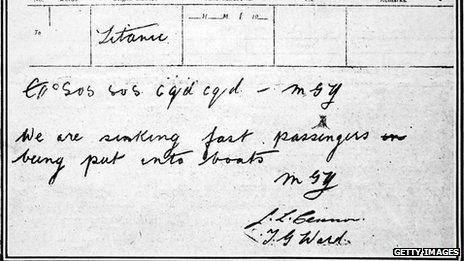 To
Titanic
SOS SOS cqd cqd - MGY
We are sinking fast passengers
being put into boats
MGY
GETTY IMAGES